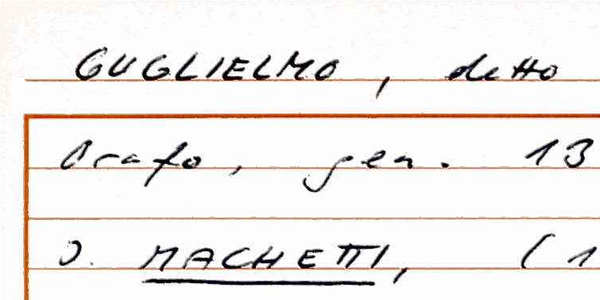 GUGLIELMO, detto
Orafo, gen. 13
O. MACHETTI, (1